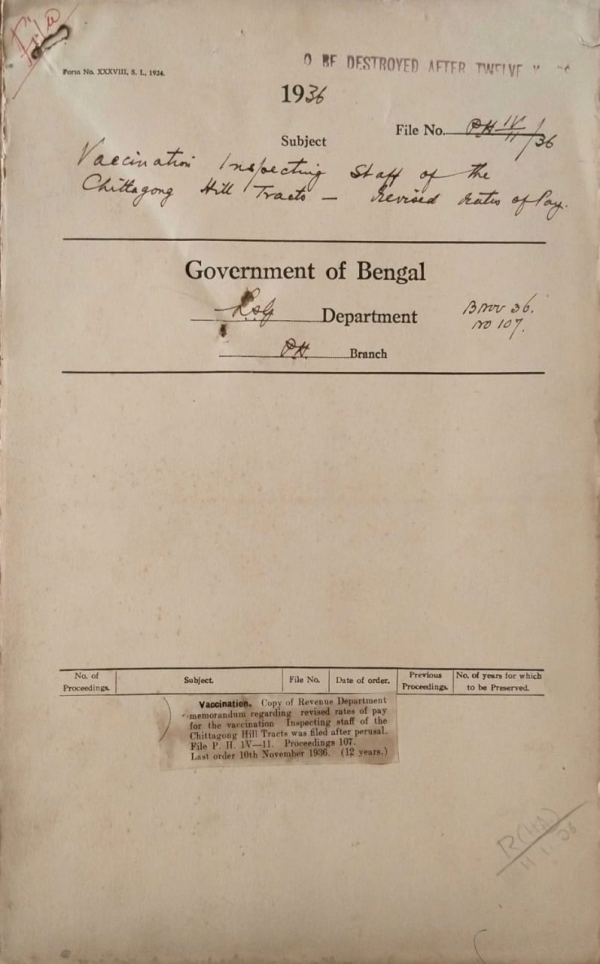 File
Form No. XXXVIII, S. L., 1934.
O BE DESTROYED AFTER TWELVE
1936
File No. P.H IV/11 /36
Subject
Vaccination Inspecting Staff of the
Chittagong Hill Tracts — Revised Rates of Pay.
Government of Bengal
L.S.G Department
B Nov 36.
No 107.
P.H. Branch
No. of Proceedings. Subject. File No. Date of order. Previous Proceedings. No. of years for which to be Preserved.
Vaccination. Copy of Revenue Department
memorandum regarding revised rates of pay
for the vaccination Inspecting staff of the
Chittagong Hill Tracts was filed after perusal.
File P. H. IV—11. Proceedings 107.
Last order 10th November 1936. (12 years.)